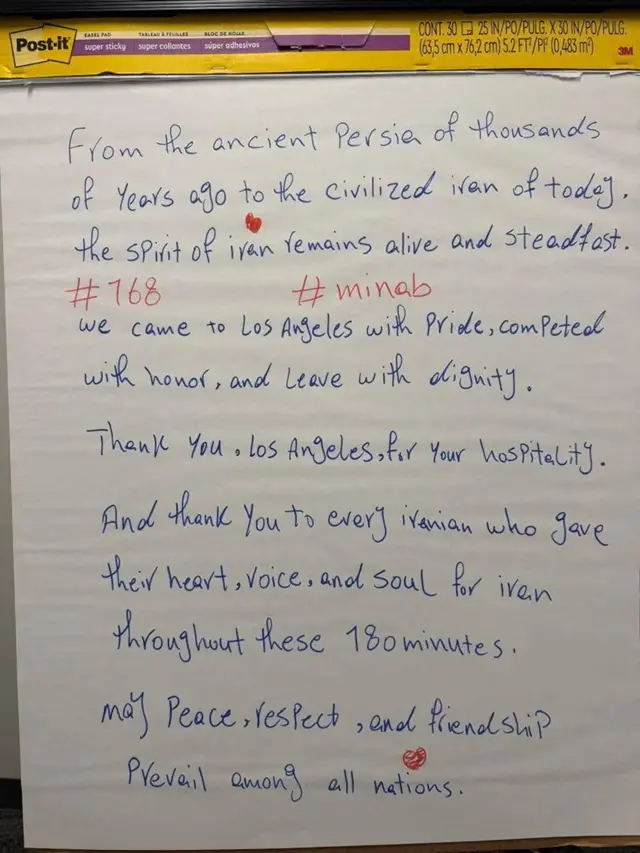 Post-it
EASEL PAD
super sticky
TABLEAU À FEUILLES
super collantes
BLOC DE HOJAS
súper adhesivos
CONT. 30 25 IN/PO/PULG. X 30 IN/PO/PULG.
(63,5 cm x 76,2 cm) 5.2 FT²/PI² (0,483 m²)
3M
From the ancient Persia of thousands
of years ago to the civilized iran of today.
the spirit of iran remains alive and steadfast.
#168 #minab
we came to Los Angeles with pride, competed
with honor, and leave with dignity.
Thank you, Los Angeles, for your hospitality.
And thank you to every iranian who gave
their heart, voice, and soul for iran
throughout these 180 minutes.
may peace, respect, and friendship
prevail among all nations.